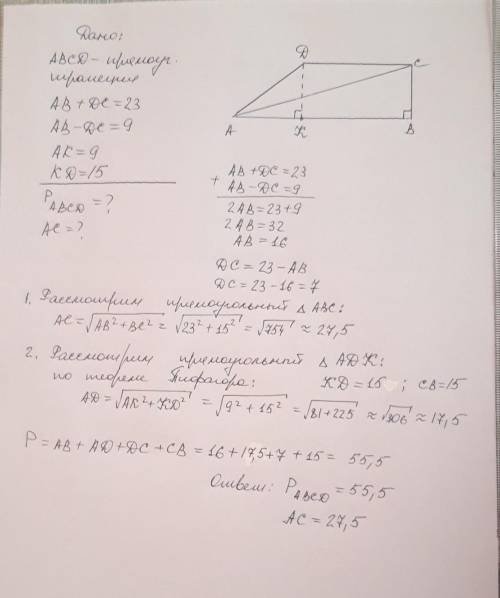 Дано:
ABCD – прямоуг.
трапеция
AB + DC = 23
AB – DC = 9
AK = 9
KD = 15
P_ABCD = ?
AC = ?
D
C
A
K
B
+ AB + DC = 23
AB – DC = 9
2AB = 23 + 9
2AB = 32
AB = 16
DC = 23 – AB
DC = 23 – 16 = 7
1. Рассмотрим прямоугольный △ ABC:
AC = √AB² + BC² = √23² + 15² = √754 ≈ 27,5
2. Рассмотрим прямоугольный △ ADK:
по теореме Пифагора: KD = 15 ; CB = 15
AD = √AK² + KD² = √9² + 15² = √81 + 225 ≈ √306 ≈ 17,5
P = AB + AD + DC + CB = 16 + 17,5 + 7 + 15 = 55,5
Ответ: P_ABCD = 55,5
AC = 27,5